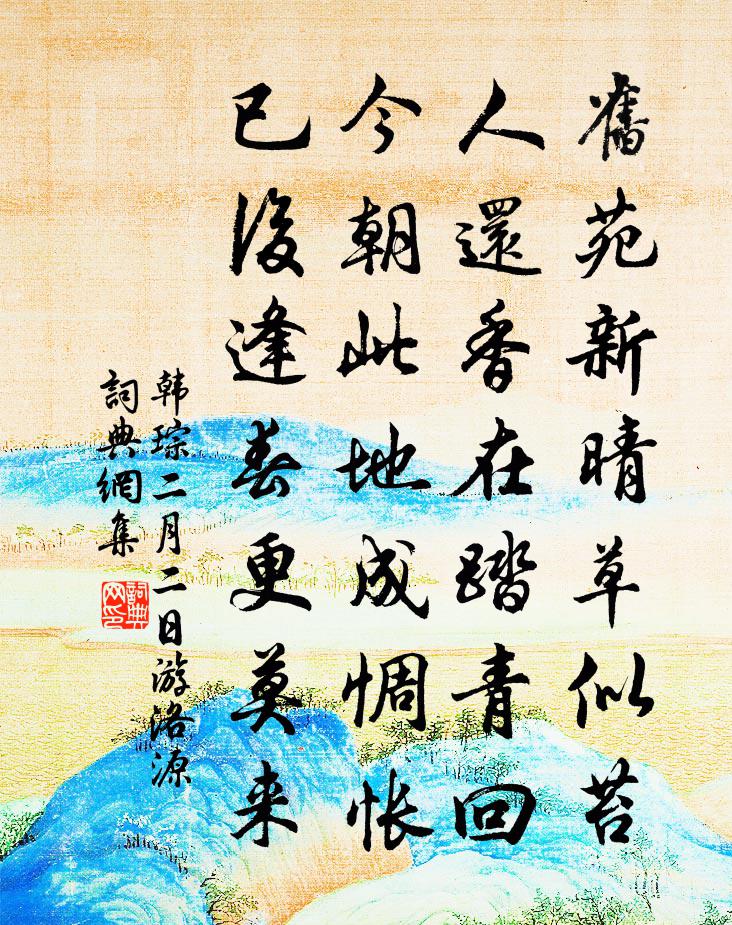 舊苑新晴草似苔
人還香在踏青回
今朝此地成惆悵
已後逢春更莫来
韩琮二月二日游洛源
詞典網集
詞典
网印